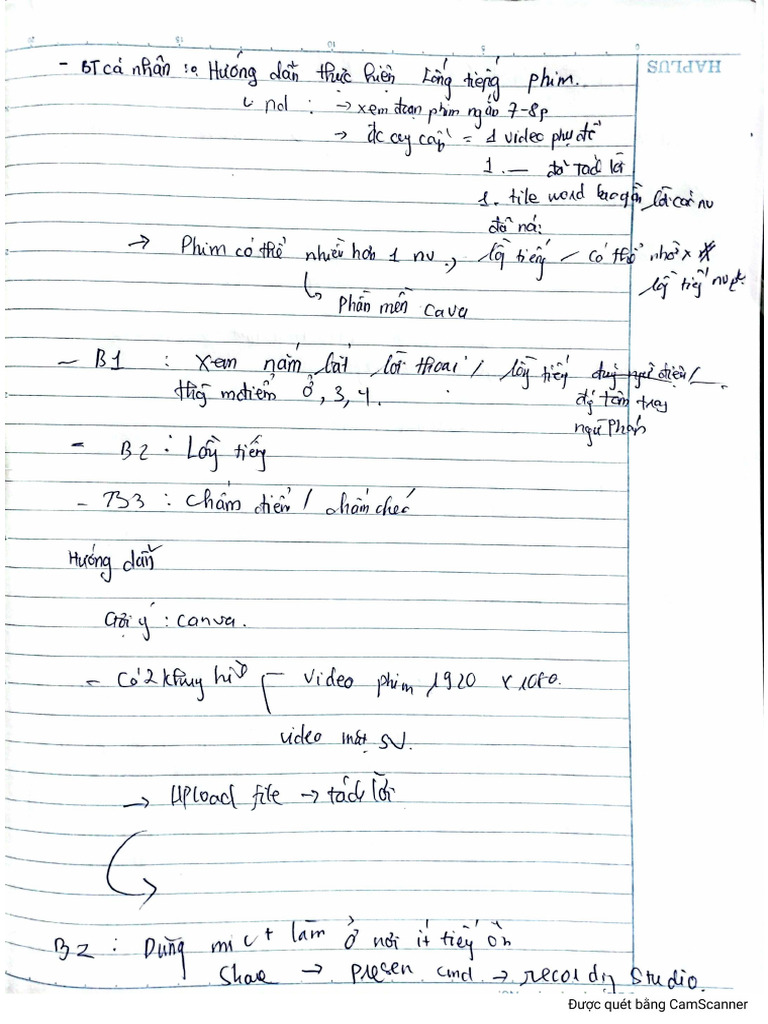 HAPLUS
- BT cá nhân : Hướng dẫn thực hiện lồng tiếng phim.
nd : → xem đoạn phim ngắn 7-8p
→ đc cung cấp = 1 video phụ đề
1 — đã tách lời
1. file word bao gồm lời các nv
đó nói
→ Phim có thể nhiều hơn 1 nv, lồng tiếng - có thể nhờ
lồng tiếng nv
Phần mền Cava
- B1 : xem nắm bắt lời thoại / lồng tiếng
ở, 3, 4.
- B2 : Lồng tiếng
- B3 : chấm điểm / chấm chéo
Hướng dẫn
Gợi ý : canva.
- Có 2 khung hình video phim 1920 x 1080.
video mặt SV.
→ Upload file → tách lời
B2 : Dùng mic + làm ở nơi ít tiếng ồn
Share → presen and → recordig Studio.
Được quét bằng CamScanner